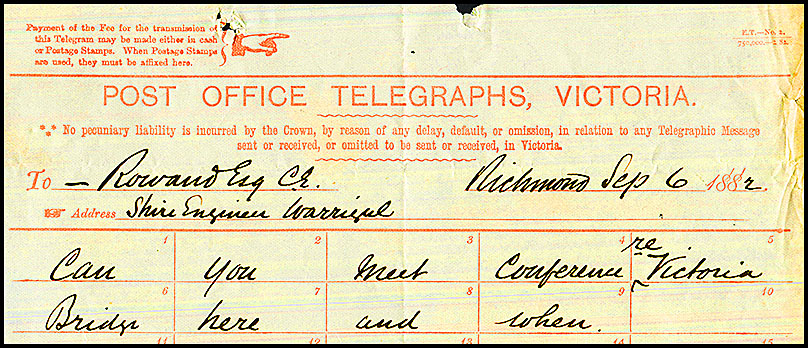 Payment of the Fee for the transmission of
this Telegram may be made either in cash
or Postage Stamps. When Postage Stamps
are used, they must be affixed here.
E.T.—No. 1.
POST OFFICE TELEGRAPHS, VICTORIA.
No pecuniary liability is incurred by the Crown, by reason of any delay, default, or omission, in relation to any Telegraphic Message
sent or received, or omitted to be sent or received, in Victoria.
To — Rowand Esq CE. Richmond Sep 6 1882.
Address Shire Engineer Warrigul
1 2 3 4 5
Can you meet Conference re Victoria
6 7 8 9 10
Bridge here and when.
11 12 13 14 15